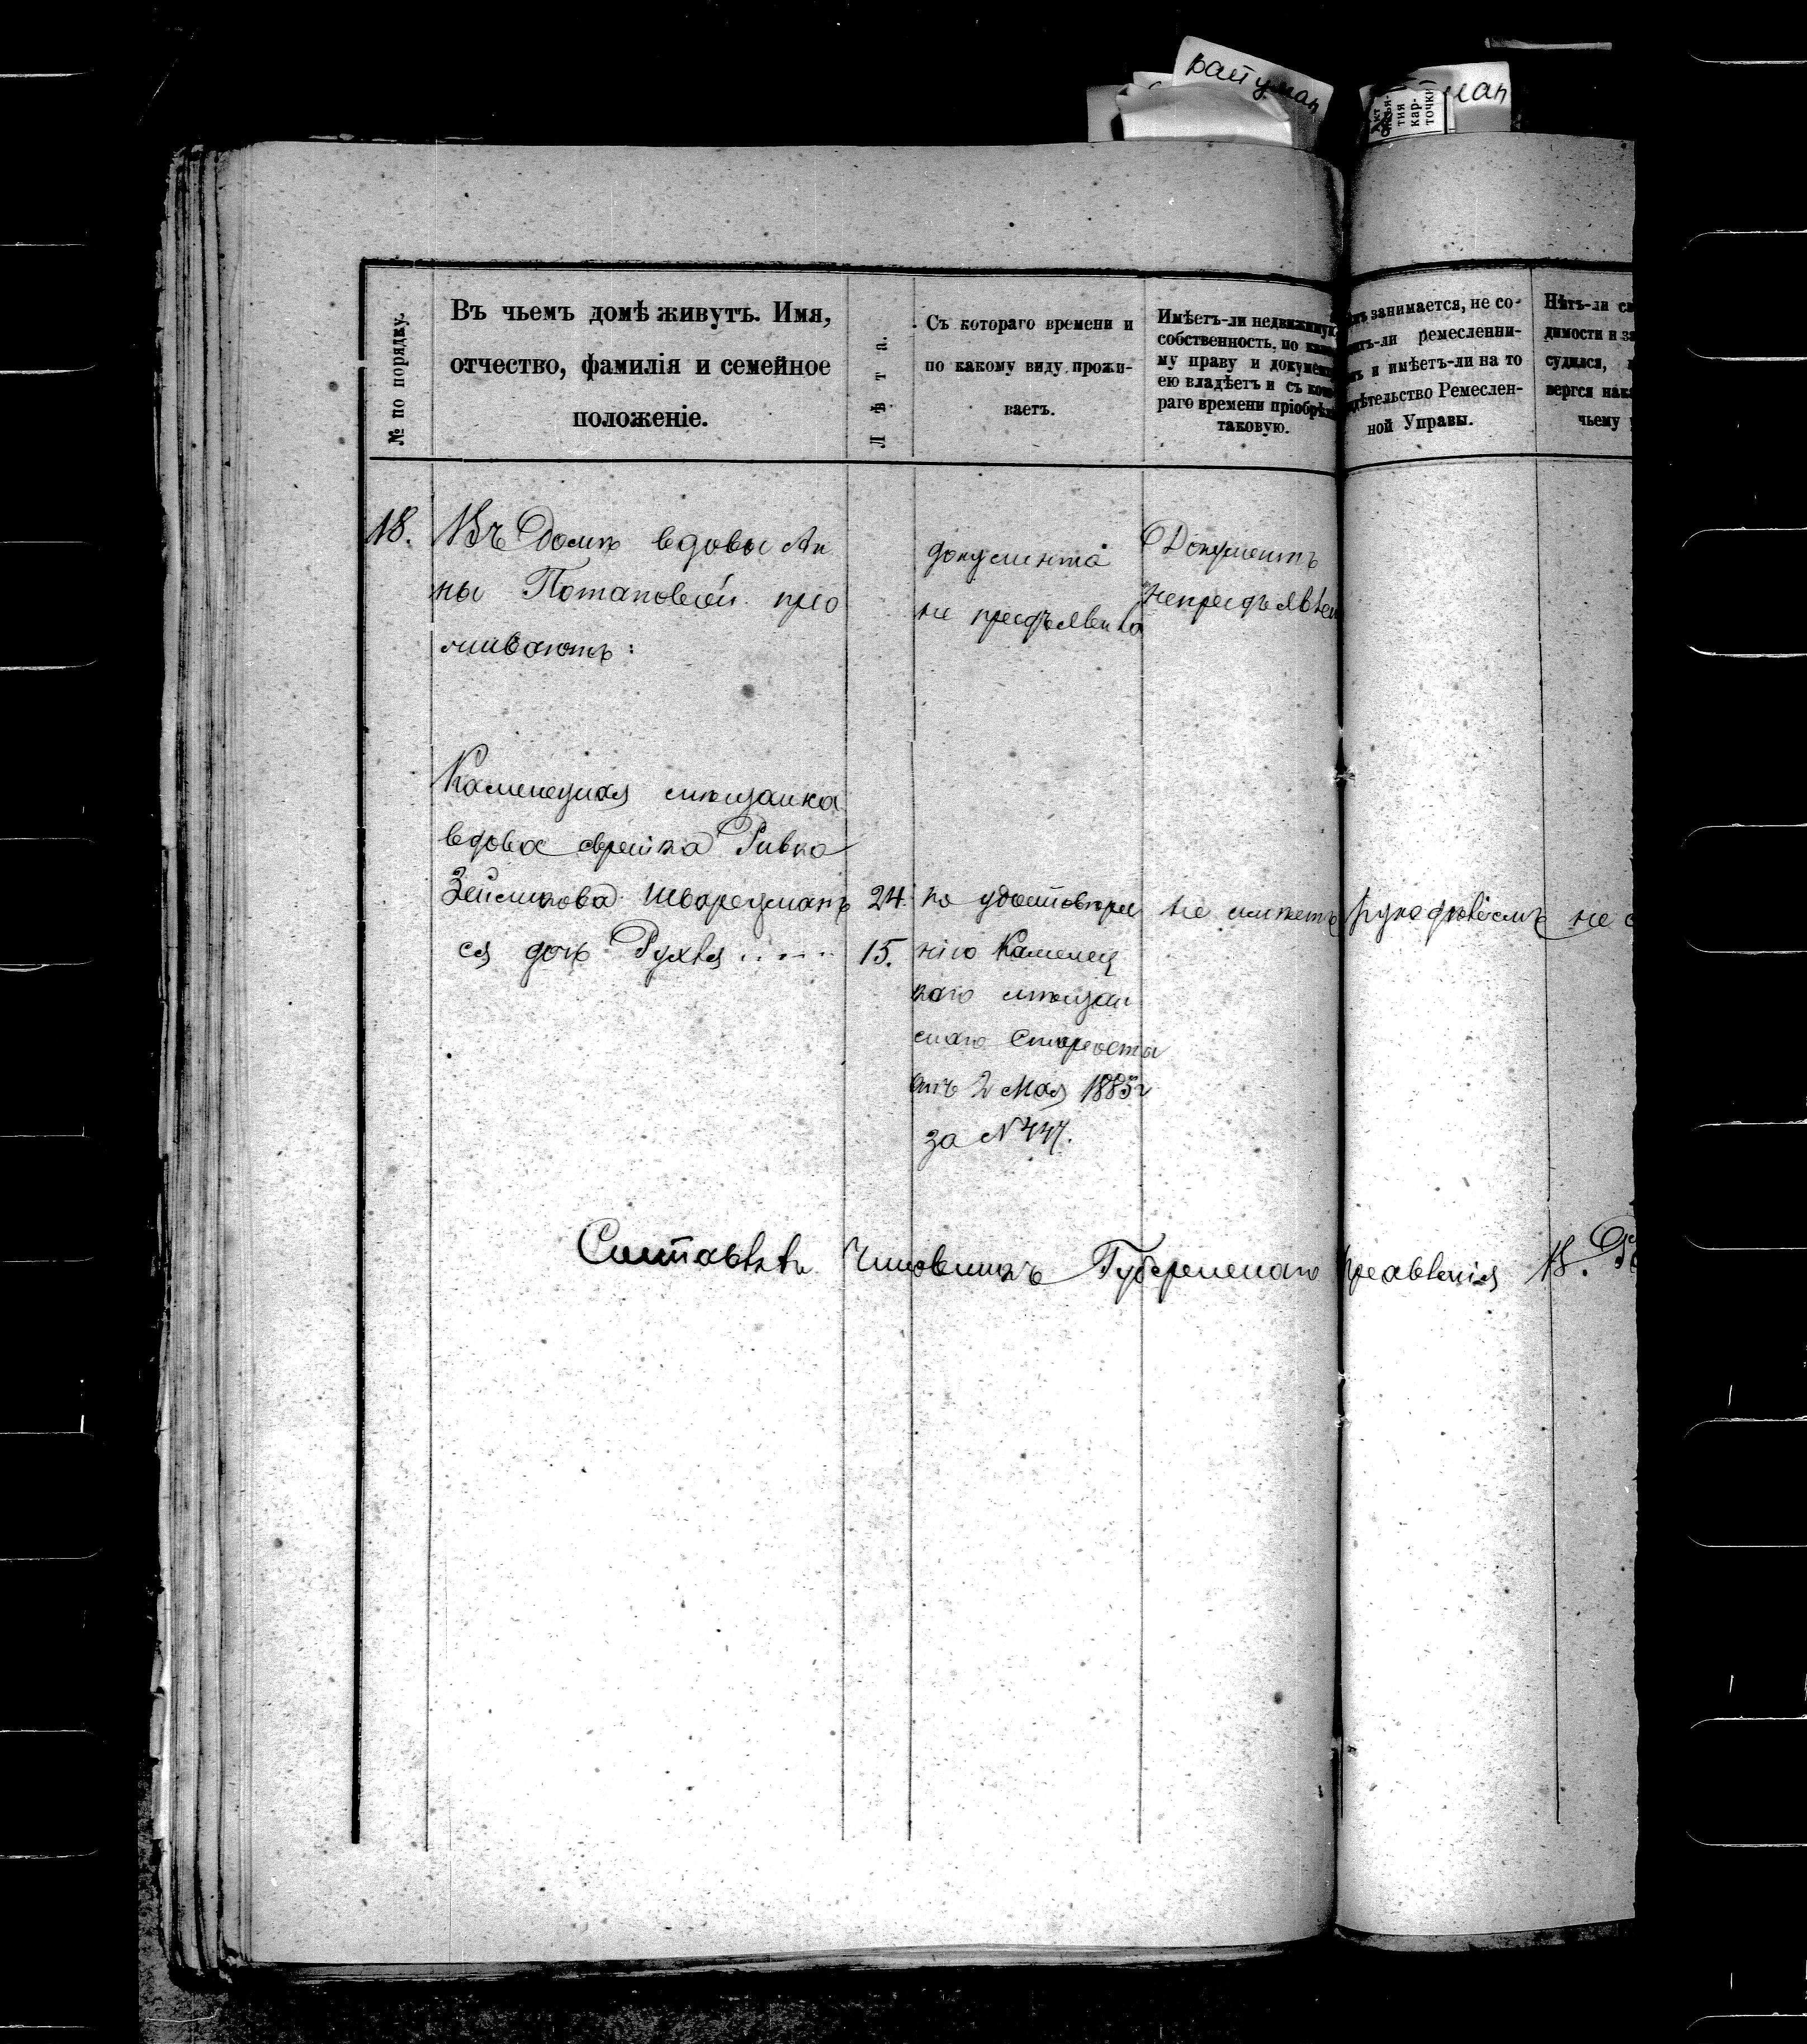 Вайуман
ман
Акт
изъя-
тия
кар-
точки
№ по порядку.
Въ чьемъ домѣ живутъ. Имя,
отчество, фамилія и семейное
положеніе.
Лѣта.
Съ котораго времени и
по какому виду прожи-
ваетъ.
Имѣетъ-ли недвижимую
собственность, по како-
му праву и документ
ею владѣетъ и съ кото-
раго времени пріобрѣл
таковую.
занимается, не со-
итъ-ли ремесленни-
и имѣетъ-ли на то
дѣтельство Ремеслен-
ной Управы.
Нѣтъ-ли
димости и
судился,
вергся нака
чьему
18.
Въ Домѣ вдовы Ан
ны Потаповой про
живаютъ:
документа
не предъявила
Документъ
Непредъявлен
Каменецкая мѣщанка
вдова еврейка Ривка
Зейликова Шварцманъ 24.
ея дочь Рухля ..... 15.
по удостовѣре
нію Каменец
каго мѣщан
скаго Старосты
отъ 2 Мая 1885г
за №447.
не имѣетъ
рукодѣліемъ
не
Составилъ Чиновникъ Губернскаго Правленія В.